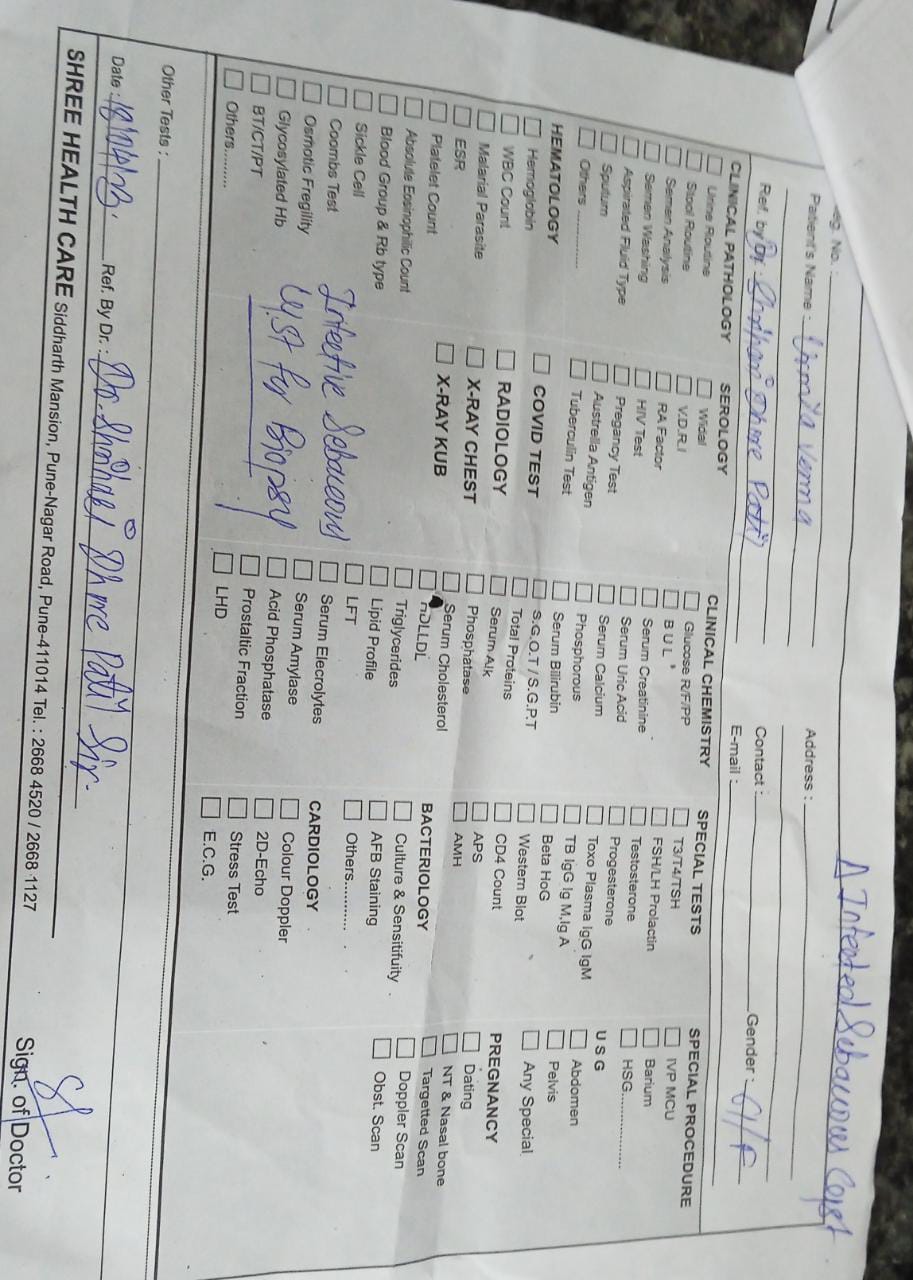 Δ Infected Sebaceous Cyst
Reg. No. :
Patient's Name : Urmila Verma
Address :
Ref. by Dr. Shripal Dhore Patil
Contact :
Gender : /F
E-mail :
CLINICAL PATHOLOGY
Urine Routine
Stool Routine
Semen Analysis
Semen Washing
Aspirated Fluid Type
Sputum
Others ............
HEMATOLOGY
Hemoglobin
WBC Count
Malarial Parasite
ESR
Platelet Count
Absolute Eosinophilic Count
Blood Group & Rb type
Sickle Cell
Coombs Test
Osmotic Fregility
Glycosylated Hb
BT/CT/PT
Others.........
SEROLOGY
Widal
V.D.R.I
RA Factor
HIV Test
Pregancy Test
Austrella Antigen
Tuberculin Test
COVID TEST
RADIOLOGY
X-RAY CHEST
X-RAY KUB
Infective Sebaceous
Cyst for Biopsy
CLINICAL CHEMISTRY
Glucose R/F/PP
B U L
Serum Creatinine
Serum Uric Acid
Serum Calcium
Phosphorous
Serum Bilirubin
S.G.O.T / S.G.P.T
Total Proteins
Serum Alk
Phosphatase
Serum Cholesterol
HDLLDL
Triglycerides
Lipid Profile
LFT
Serum Elecrolytes
Serum Amylase
Acid Phosphatase
Prostallic Fraction
LHD
SPECIAL TESTS
T3/T4/TSH
FSH/LH Prolactin
Testosterone
Progesterone
Toxo Plasma IgG IgM
TB IgG Ig M.Ig A
Beta HoG
Western Blot
CD4 Count
APS
AMH
BACTERIOLOGY
Culture & Sensitifuity
AFB Staining
Others.........
CARDIOLOGY
Colour Doppler
2D-Echo
Stress Test
E.C.G.
SPECIAL PROCEDURE
IVP MCU
Barium
HSG...............
U S G
Abdomen
Pelvis
Any Special
PREGNANCY
Dating
NT & Nasal bone
Targetted Scan
Doppler Scan
Obst. Scan
Other Tests :
Date : Ref. By Dr. : Dr. Shripal Dhore Patil Sir.
SHREE HEALTH CARE Siddharth Mansion, Pune-Nagar Road, Pune-411014 Tel. : 2668 4520 / 2668 1127
Sign. of Doctor